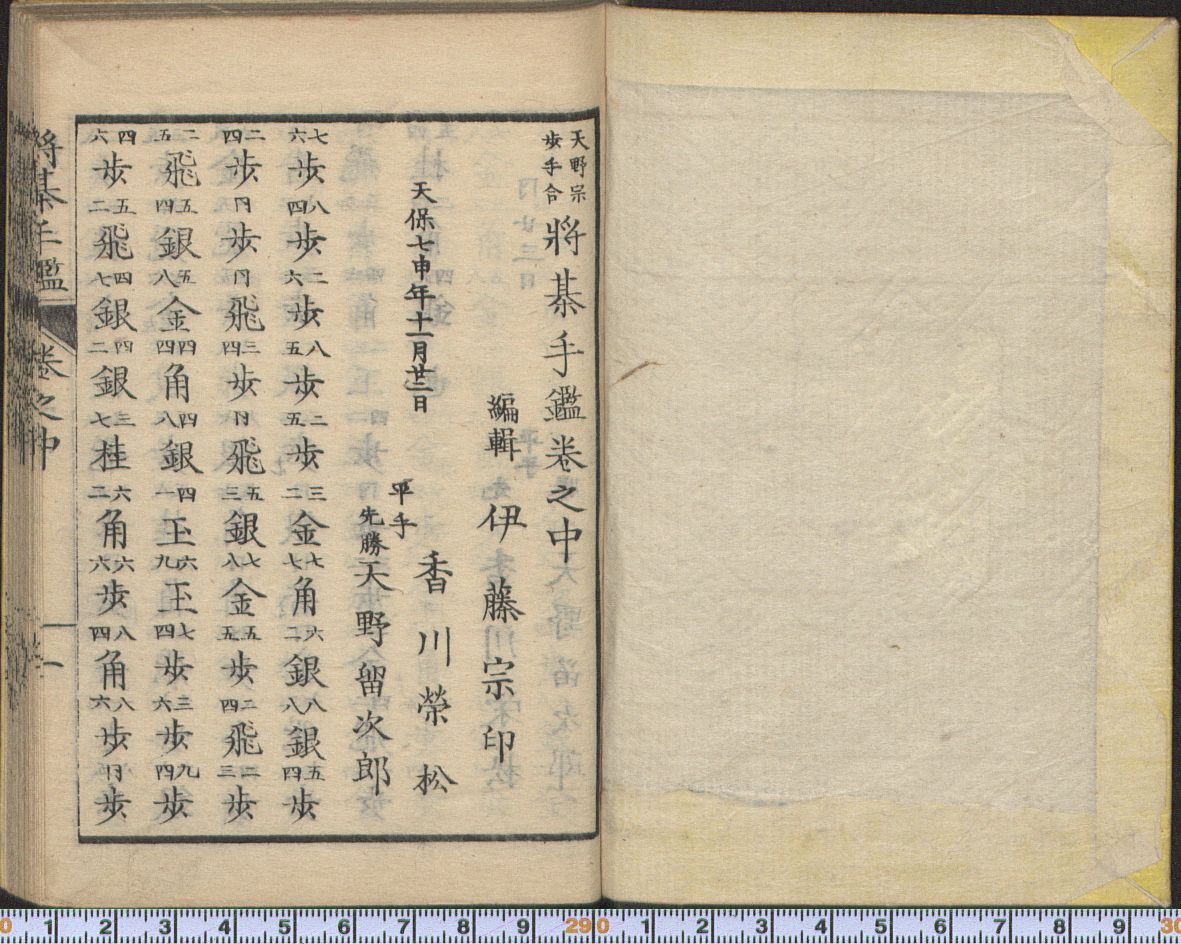 天野宗歩手合 將棊手鑑巻之中
編輯 伊藤宗印
天保七申年十一月廿三日
平手 香川榮松
先勝 天野留次郎
七六歩 八四歩 二六歩 八五歩 二五歩 三二金 七七角 六二銀 八八銀 五四歩
二四歩 同歩 同飛 三四歩 同飛 五三銀 七八金 五五歩 二四飛 二三歩
二五飛 五四銀 五八金 四四角 四八銀 四一玉 六九玉 七四歩 三六歩 九四歩
四六歩 五二飛 四七銀 四二銀 三七桂 六二角 六六歩 八四角 八六歩 同歩
將棊手鑑 巻之中 一
0 1 2 3 4 5 6 7 8 9 29 0 1 2 3 4 5 6 7 8 9 30